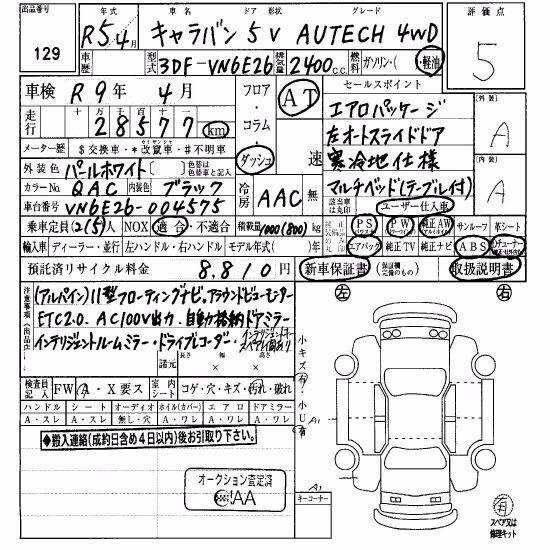 出品番号 年式 車名 ドア 形状 グレード 評価点
129 R5/4月 キャラバン 5V AUTECH 4WD 5
車歴 型式 3DF-VN6E26 排気量 2400c.c. 燃料 ガソリン・(軽油)
車検 R9年 4月 フロア・コラム・ダッシュ AT速 セールスポイント
走行 十万千百十 28577km エアロパッケージ 外装 A
メーター歴 $交換車・*改竄車・#不明車 左オートスライドドア
外装色 パールホワイト 色替は色替車と記入 寒冷地仕様 内装 A
カラーNo. QAC 内装色 ブラック 冷房 AAC 無 マルチベッド(テーブル付)
車台番号 VN6E26-004575 該当事は丸印 ユーザー仕入車
乗車定員 2(5)人 NOX 適合・不適合 積載量 1000(800)kg PS PW 純正AW サンルーフ 革シート
輸入車 ディーラー・並行 左ハンドル・右ハンドル モデル年式( )年 エアバック 純正TV 純正ナビ ABS
預託済リサイクル料金 8,810円 新車保証書 (保証欄完備のもの) 取扱説明書
注意事項 (アルパイン)11型フローティングナビ。アラウンドビューモニター
ETC2.0. AC100V出力. 自動格納ドアミラー
インテリジェントルームミラー・ドライブレコーダー・インテリジェントキースペアキー有り
諸元 長さ 幅 高さ × ×
左 右
小キズ有 小U有
検査員記入 FW A・X要ス 室内シート コゲ・穴・キズ・汚れ・破れ
ハンドル シート オーディオ ホイル(カバー) エアロ ドアミラー
A・スレ A・スレ 無し・穴 A・ワレ A・ワレ A・ワレ
A1
◆搬入連絡(成約日含め4日以内)後お引取り下さい。
オークション査定済
AA
A1
キーコーナー
有
スペア又は
修理キット